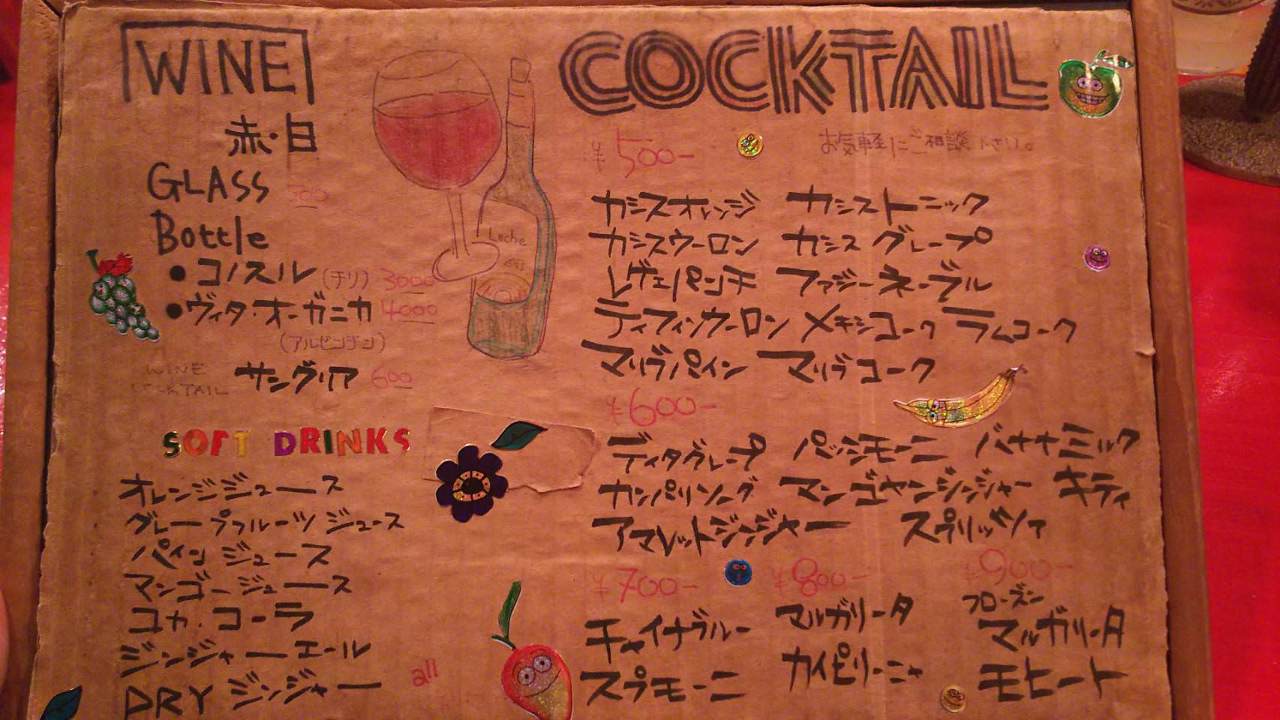 WINE
赤・白
GLASS 500
Bottle
●コノスル (チリ) 3000
●ヴィタ・オーガニカ 4000
(アルゼンチン)
WINE
COCKTAIL サングリア 600
SOFT DRINKS
オレンジジュース
グレープフルーツジュース
パインジュース
マンゴージュース
コカ・コーラ
ジンジャーエール
DRY ジンジャー
all
COCKTAIL
¥500-
お気軽にご相談下さい。
カシスオレンジ カシストニック
カシスウーロン カシスグレープ
レゲェパンチ ファジーネーブル
ティフィンウーロン メキシコーク ラムコーク
マリブパイン マリブコーク
¥600-
ディタグレープ パッシモーニ バナナミルク
カンパリソーダ マンゴヤンジンジャー キティ
アマレットジンジャー スプリッツァ
¥700- ¥800- ¥900-
チャイナブルー マルガリータ フローズン
マルガリータ
スプモーニ カイピリーニャ モヒート